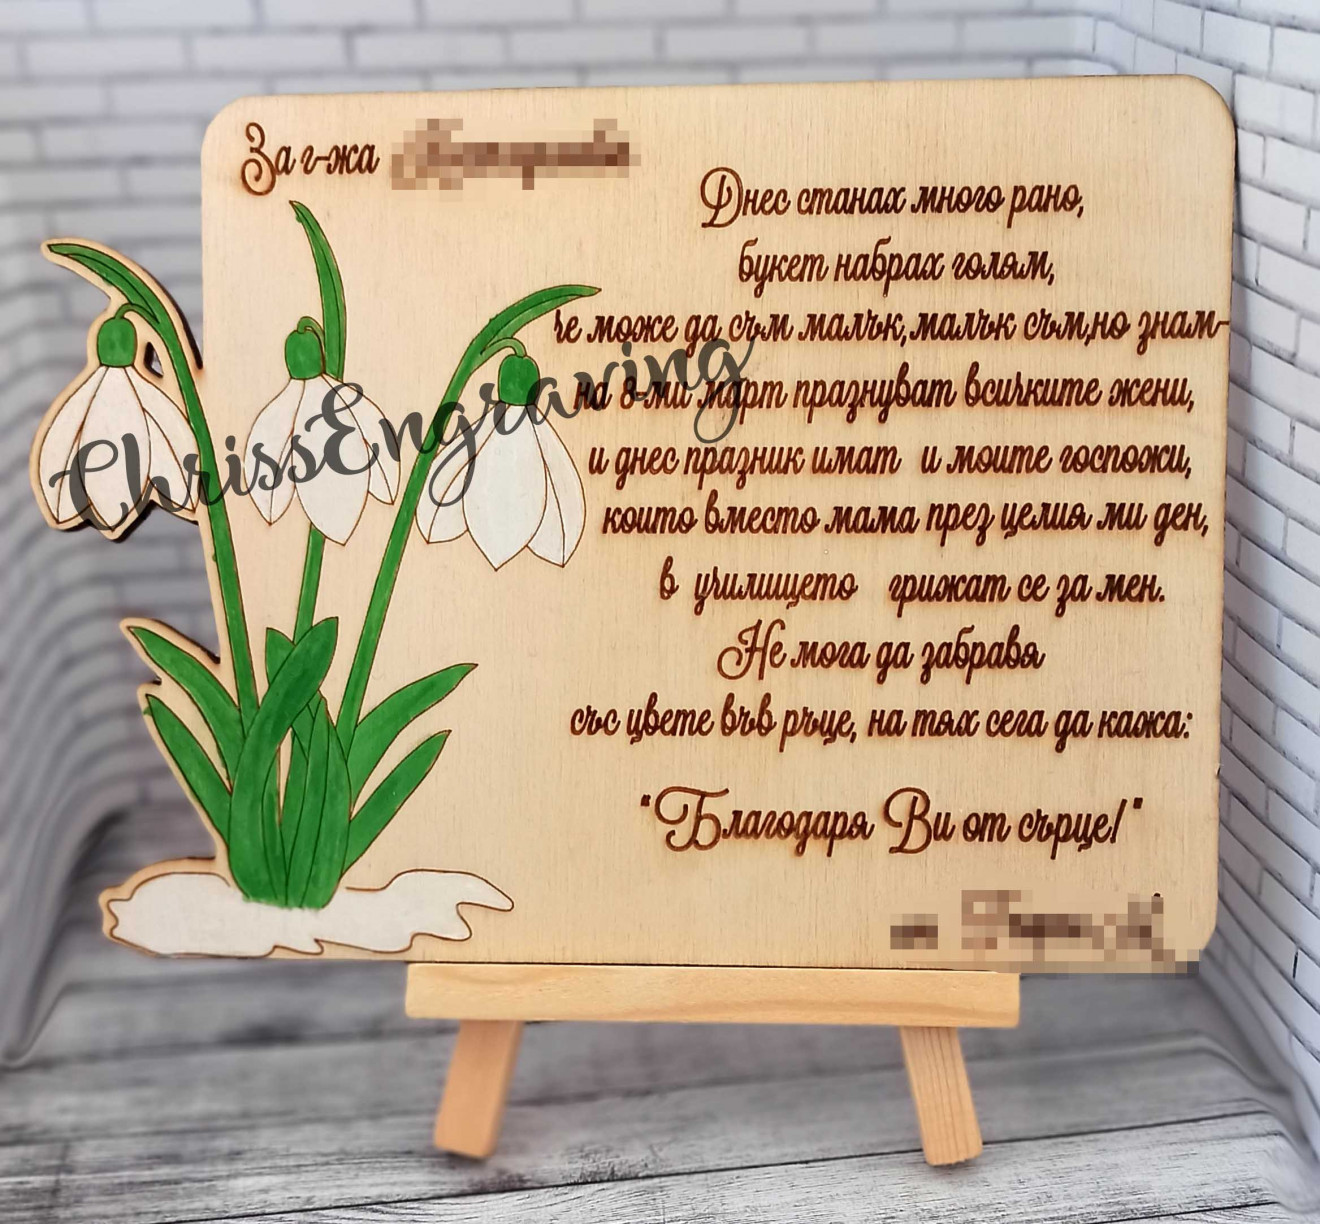 За г-жа
Днес станах много рано,
букет набрах голям,
че може да съм малък,малък съм,но знам-
на 8-ми март празнуват всичките жени,
и днес празник имат и моите госпожи,
които вместо мама през целия ми ден,
в училището грижат се за мен.
Не мога да забравя
със цвете във ръце, на тях сега да кажа:
"Благодаря Ви от сърце!"
ChrissEngraving